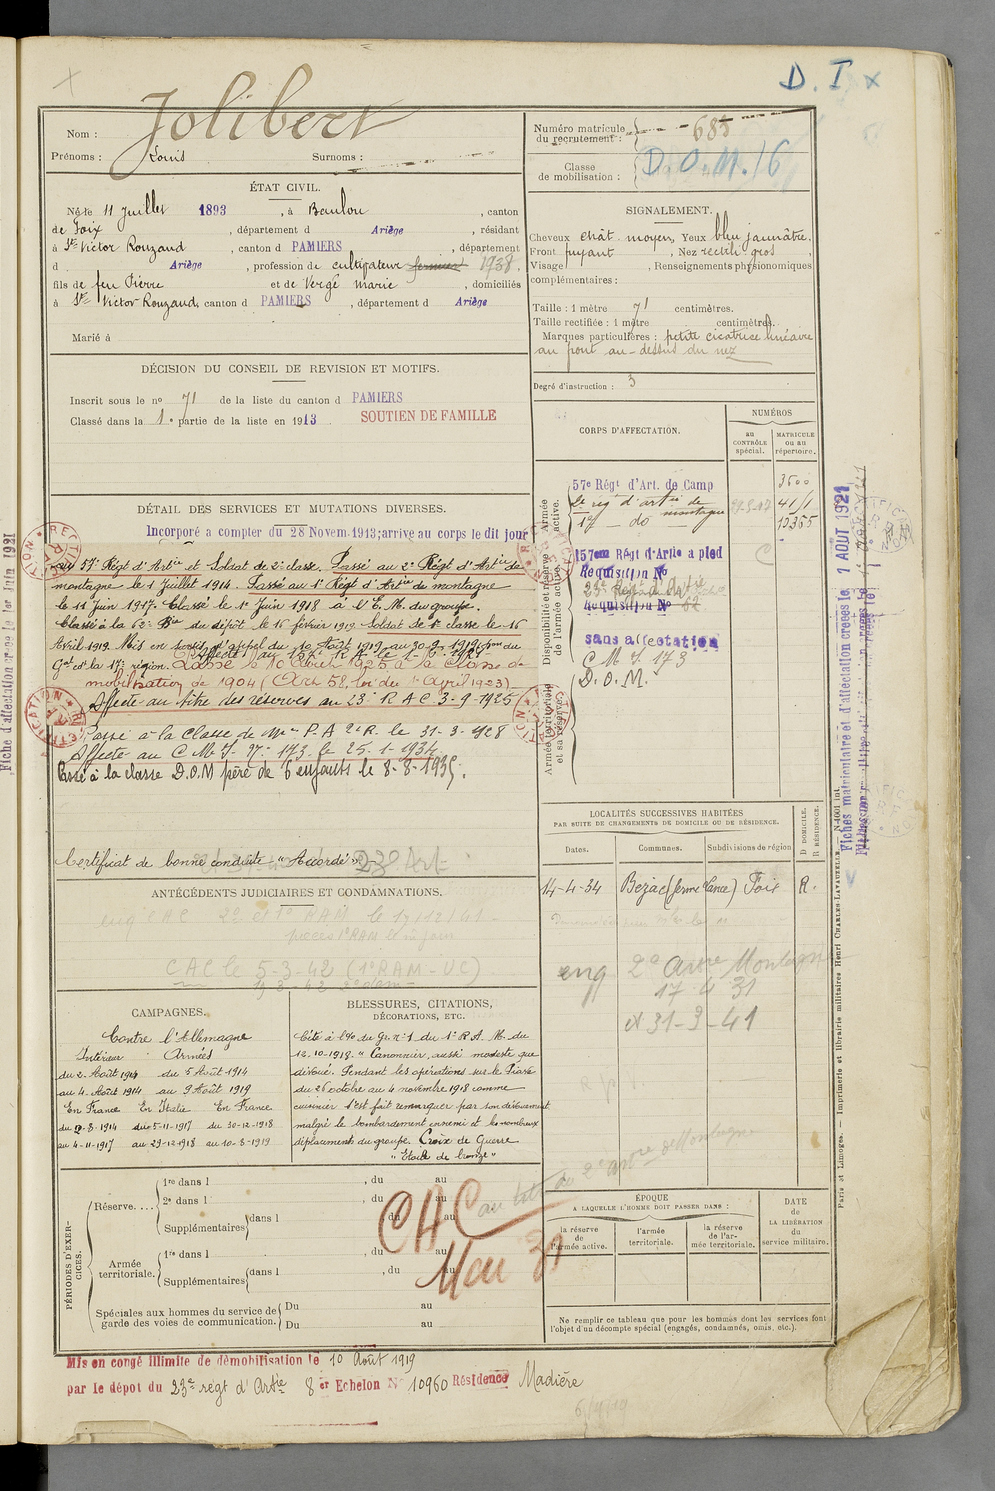 D. I ×
Jolibert
Nom :
Prénoms : Louis Surnoms :
Numéro matricule du recrutement : 685
Classe de mobilisation : D. O. M. 16
ÉTAT CIVIL.
Né le 11 Juillet 1893, à Baulou, canton
de Foix, département d Ariège, résidant
à St Victor Rouzaud, canton d PAMIERS, département
d Ariège, profession de cultivateur 1938.
fils de feu Pierre et de Vergé Marie, domiciliés
à St Victor Rouzaud, canton d PAMIERS, département d Ariège
Marié à
SIGNALEMENT.
Cheveux chât. moyen, Yeux bleu jaunâtre,
Front fuyant, Nez rectil. gros,
Visage , Renseignements physionomiques
complémentaires :
Taille : 1 mètre 71 centimètres.
Taille rectifiée : 1 mètre centimètres.
Marques particulières : petite cicatrice linéaire
au front au-dessus du nez
Degré d'instruction : 3
DÉCISION DU CONSEIL DE REVISION ET MOTIFS.
Inscrit sous le no 71 de la liste du canton d PAMIERS
Classé dans la 1e partie de la liste en 1913 SOUTIEN DE FAMILLE
CORPS D'AFFECTATION.
NUMÉROS
au CONTRÔLE spécial.
MATRICULE ou au répertoire.
Armée active.
57e Régt d'Art. de Camp 3500
2e rég d'artie de montagne 41/1
1er — do 10365
Disponibilité et réserve de l'armée active.
57eme Régt d'Artie à pied
Requisition No
23e Régt d'Artie
Requisition No
sans affectation
C M I 173
D. O. M.
Armée territoriale et sa réserve.
DÉTAIL DES SERVICES ET MUTATIONS DIVERSES.
Incorporé a compter du 28 Novem. 1913; arrive au corps le dit jour
au 57e Régt d'Artie et Soldat de 2e classe. Passé au 2e Régt d'Artie de
montagne le 1 Juillet 1914. Passé au 1er Régt d'Artie de montagne
le 11 Juin 1917. Classé le 1er Juin 1918 à l'E. M. du groupe.
Classé à la 62e Bie du dépôt le 16 février 1919. Soldat de 1e classe le 16
Avril 1919.
Gal cdt la 17e région. Passé le 10 Avril 1925 à la classe de
mobilisation de 1904 (Art 58, loi du 1er avril 1923)
Affecté au titre des réserves au 23e R A C 3-9-1925
Passé à la classe de Mon P.A 2e R. le 31-3-1928
Affecté au C M I No 173 le 25-1-1934
Passé à la classe D.O.M père de 6 enfants le 8-8-1935.
Certificat de bonne conduite "Accordé"
LOCALITÉS SUCCESSIVES HABITÉES
PAR SUITE DE CHANGEMENTS DE DOMICILE OU DE RÉSIDENCE.
Dates. Communes. Subdivisions de région
D DOMICILE. R RÉSIDENCE.
14-4-34 Bézac (ferme Lance) Foix R.
eng 2e artie Montagne
17 4 31
et 31-3-41
ANTÉCÉDENTS JUDICIAIRES ET CONDAMNATIONS.
CAC 2e et 1er RAM le 17/12/41
CAC le 5-3-42 (1er RAM - UC)
CAMPAGNES.
Contre l'Allemagne
Intérieur Armées
du 2 Août 1914 du 5 Août 1914
au 4 Août 1914 au 9 Août 1919
En France En Italie En France
du 2-8-1914 du 5-11-1917 du 30-12-1918
au 4-11-1917 au 29-12-1918 au 10-8-1919
BLESSURES, CITATIONS,
DÉCORATIONS, ETC.
Cité à l'Oe du Gr. no 1 du 1er R. A. M. du
12-10-1918. "Canonnier, aussi modeste que
dévoué. Pendant les opérations sur le Piave
du 26 octobre au 4 novembre 1918 comme
cuisinier s'est fait remarquer par son dévouement
malgré le bombardement ennemi et les nombreux
déplacements du groupe. Croix de Guerre
"Etoile de bronze"
PÉRIODES D'EXERCICES.
Réserve....
1re dans l , du au
2e dans l , du au
Supplémentaires dans l du au
Armée territoriale.
1re dans l , du au
Supplémentaires dans l , du au
Spéciales aux hommes du service de garde des voies de communication.
Du au
Du au
CAC
Mai 31
au titre du 2e artre de Montagne
ÉPOQUE
A LAQUELLE L'HOMME DOIT PASSER DANS :
la réserve de l'armée active.
l'armée territoriale.
la réserve de l'armée territoriale.
DATE DE LA LIBÉRATION du service militaire.
Ne remplir ce tableau que pour les hommes dont les services font
l'objet d'un décompte spécial (engagés, condamnés, omis, etc.).
Mis en congé illimité de démobilisation le 10 Août 1919
par le dépôt du 23e régt d'Artie 8er Echelon No 10960 Résidence Madière
Fiche d'affectation créée le 1er Juin 1921
Fiches matriculaire et d'affectation créées le 1 AOUT 1921
Paris et Limoges. — Imprimerie et librairie militaires Henri CHARLES-LAVAUZELLE. — N 1001 int.